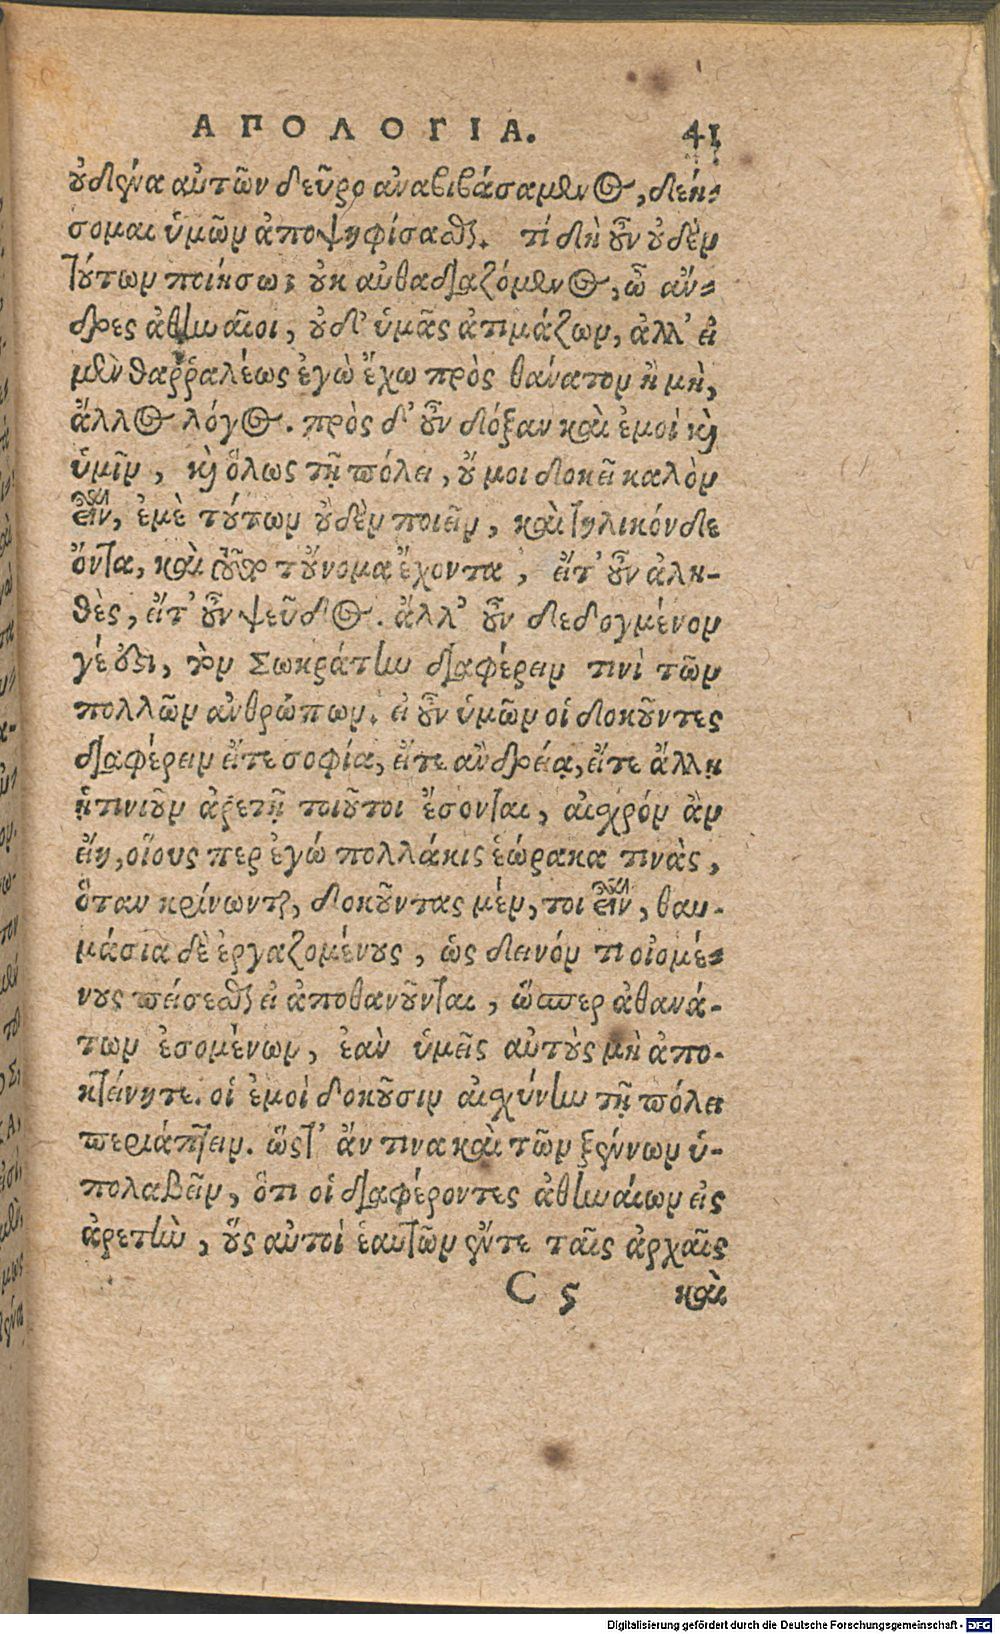 ΑΠΟΛΟΓΙΑ. 41
οὐδένα αὐτῶν δεῦρο ἀναβιβάσαμενος, δεή-
σομαι ὑμῶν ἀποψηφίσασθαι. τί δὴ οὖν οὐδὲν
τούτων ποιήσω; οὐκ αὐθαδιαζόμενος, ὦ ἄν-
δρες ἀθηναῖοι, οὐδ' ὑμᾶς ἀτιμάζων, ἀλλ' εἰ
μὲν θαῤῥαλέως ἐγὼ ἔχω πρὸς θάνατον ἢ μὴ,
ἄλλος λόγος. πρὸς δ' οὖν δόξαν καὶ ἐμοὶ καὶ
ὑμῖν, καὶ ὅλως τῇ πόλει, οὔ μοι δοκεῖ καλὸν
εἶναι, ἐμὲ τούτων οὐδὲν ποιεῖν, καὶ τηλικόνδε
ὄντα, καὶ τοῦτο τοὔνομα ἔχοντα, εἴτ' οὖν ἀλη-
θὲς, εἴτ' οὖν ψεῦδος. ἄλλ' οὖν δεδογμένον
γέ ἐστι, τὸν Σωκράτην διαφέρειν τινὶ τῶν
πολλῶν ἀνθρώπων. εἰ οὖν ὑμῶν οἱ δοκοῦντες
διαφέρειν εἴτε σοφίᾳ, εἴτε ἀνδρείᾳ, εἴτε ἄλλῃ
ᾑτινιοῦν ἀρετῇ τοιοῦτοι ἔσονται, αἰσχρόν ἂν
εἴη, οἵους περ ἐγώ πολλάκις ἑώρακα τινὰς,
ὅταν κρίνωνται, δοκοῦντας μέν, τοι εἶναι, θαυ-
μάσια δὲ ἐργαζομένους, ὡς δεινόν τι οἰομέ-
νους πείσεσθαι εἰ ἀποθανοῦνται, ὥσπερ ἀθανά-
των ἐσομένων, ἐὰν ὑμεῖς αὐτοὺς μὴ ἀπο-
κτείνητε. οἱ ἐμοὶ δοκοῦσιν αἰσχύνην τῇ πόλει
περιάπτειν. ὥστ' ἄν τινα καὶ τῶν ξένων ὑ-
πολαβεῖν, ὅτι οἱ διαφέροντες ἀθηναίων εἰς
ἀρετὴν, οὓς αὐτοὶ ἑαυτῶν ἔν τε ταῖς ἀρχαῖς
C 5 καὶ
Digitalisierung gefördert durch die Deutsche Forschungsgemeinschaft - DFG